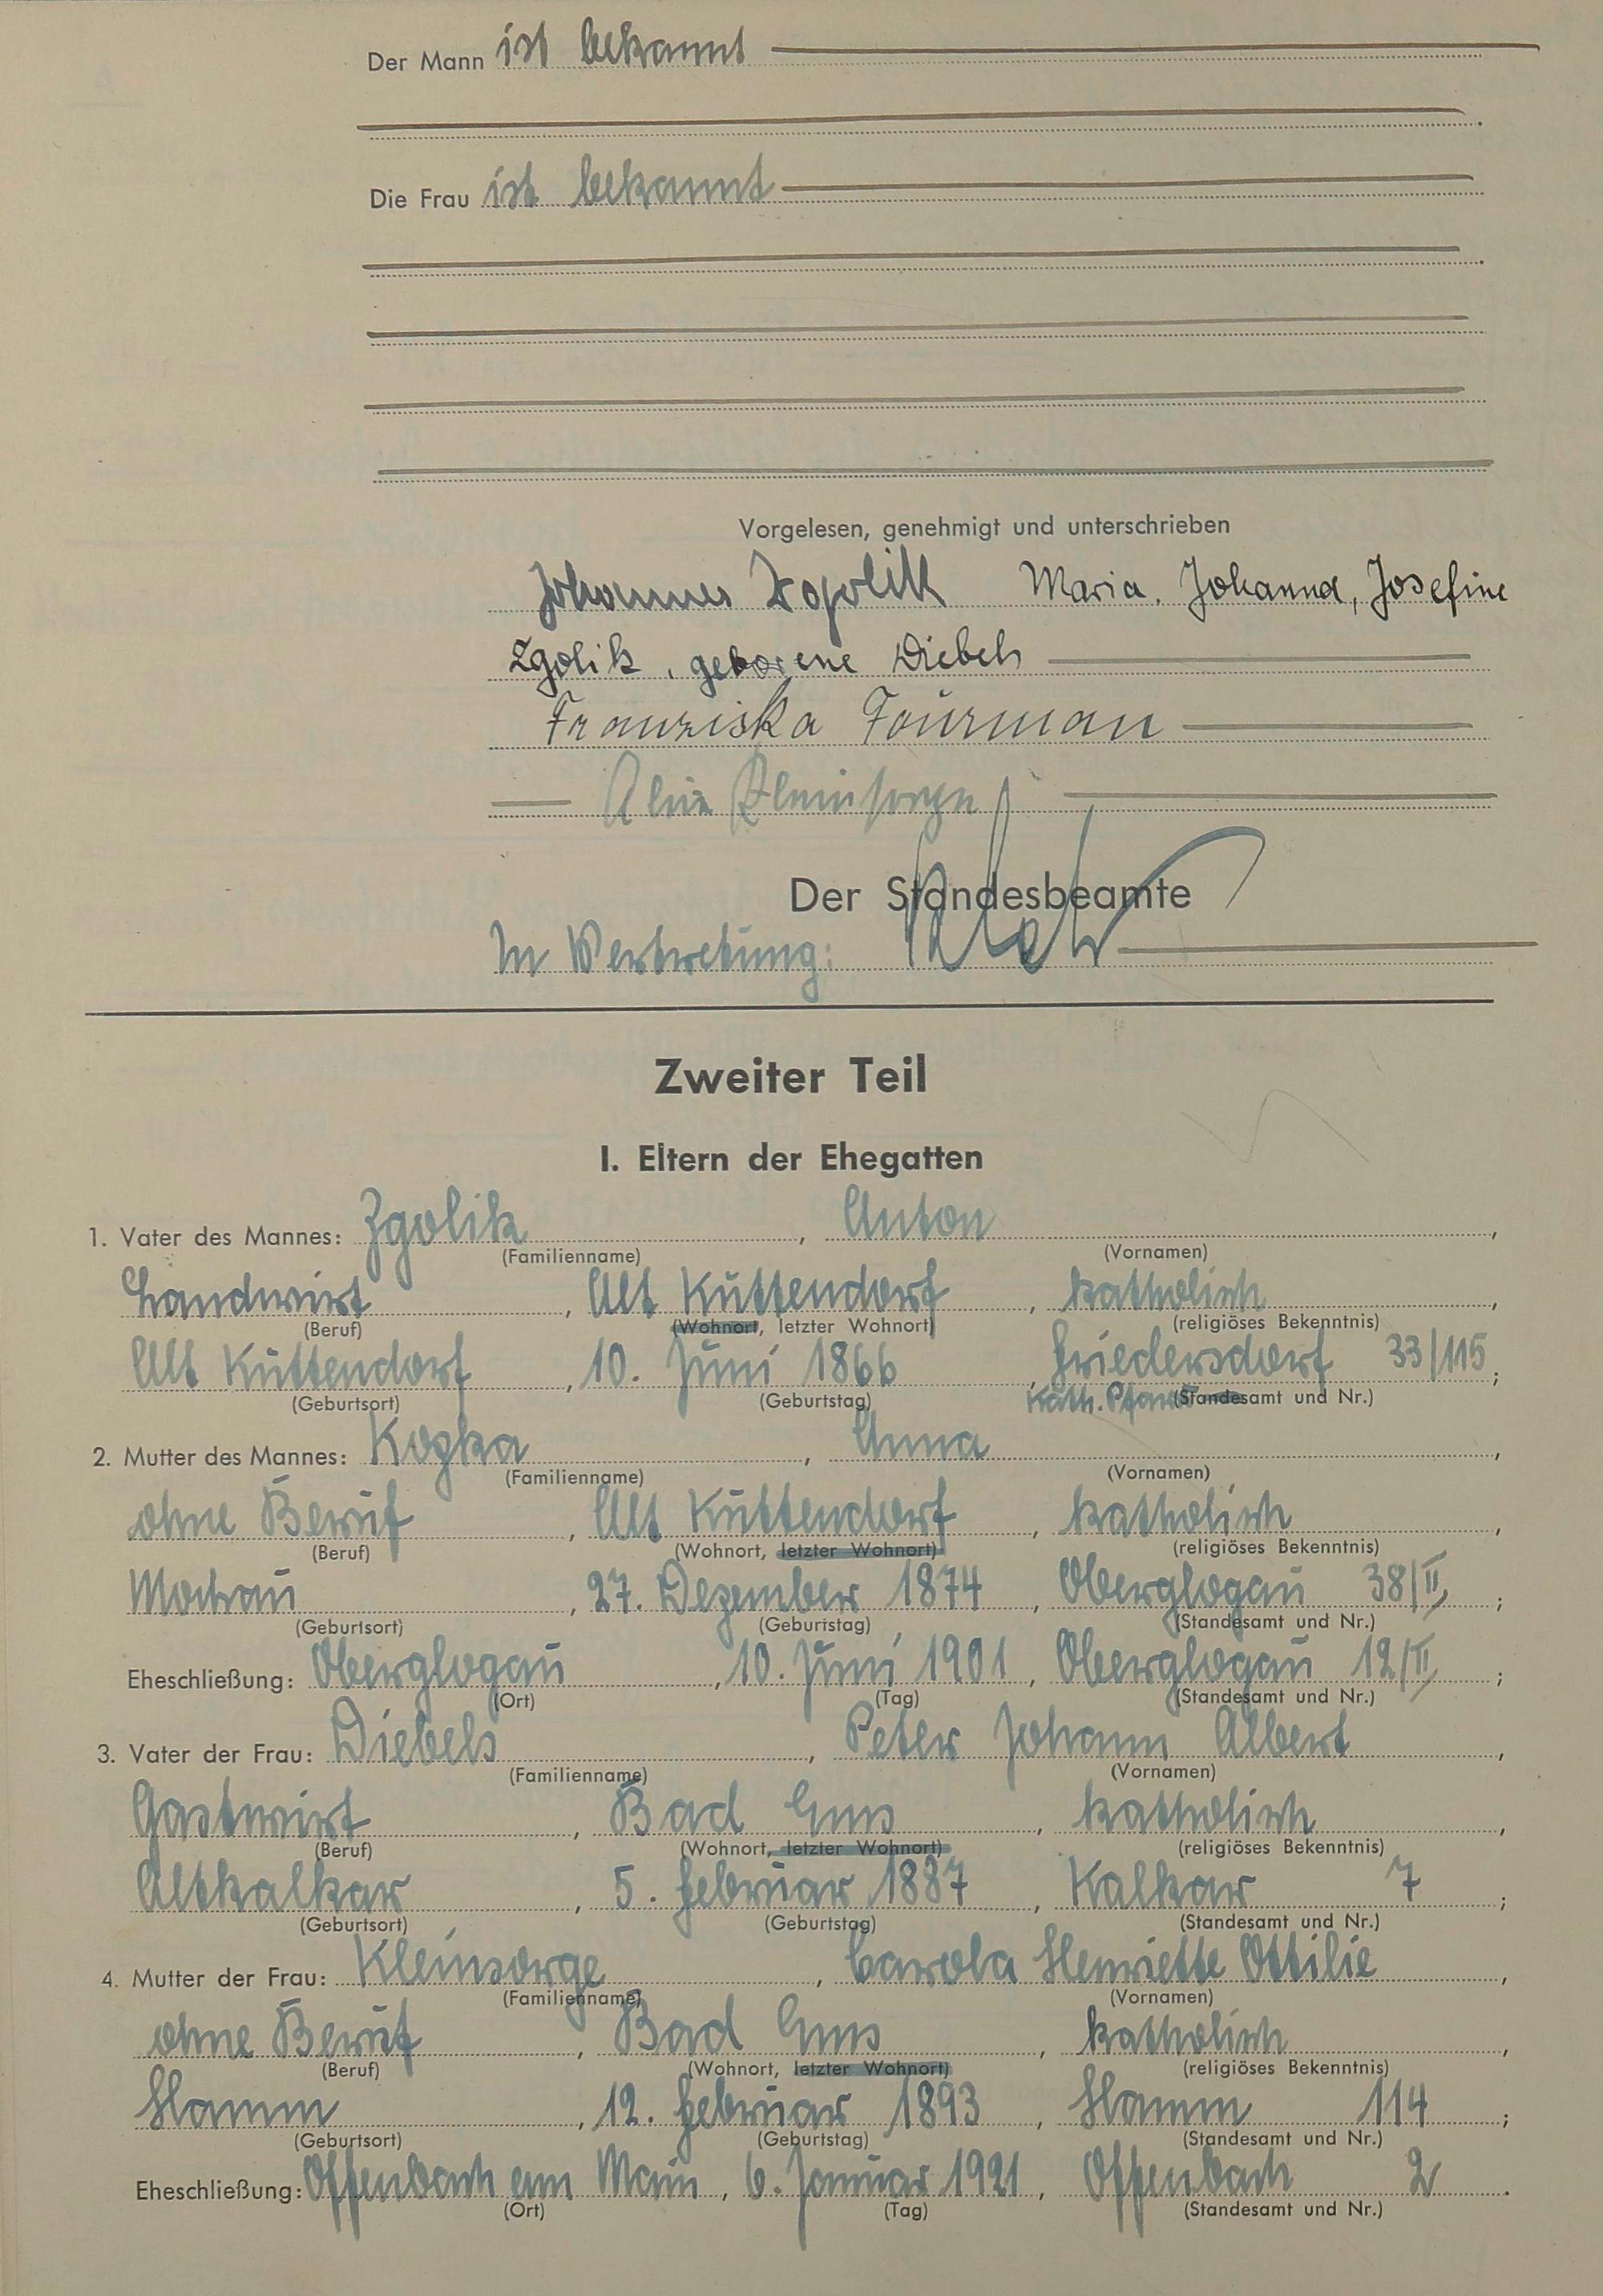 Der Mann ist bekannt
Die Frau ist bekannt
Vorgelesen, genehmigt und unterschrieben
Johannes Zgolik Maria, Johanna, Josefine
Zgolik, geborene Diebels
Franziska Fourman
Kleinsorge
Der Standesbeamte
In Vertretung:
Zweiter Teil
I. Eltern der Ehegatten
1. Vater des Mannes: Zgolik, Anton,
(Familienname) (Vornamen)
Landwirt, Alt Kuttendorf, katholisch,
(Beruf) (Wohnort, letzter Wohnort) (religiöses Bekenntnis)
Alt Kuttendorf, 10. Juni 1866, Friedersdorf 33/115;
(Geburtsort) (Geburtstag) Kath. Pfarr (Standesamt und Nr.)
2. Mutter des Mannes: Kozka, Anna,
(Familienname) (Vornamen)
ohne Beruf, Alt Kuttendorf, katholisch,
(Beruf) (Wohnort, letzter Wohnort) (religiöses Bekenntnis)
Mochau, 27. Dezember 1874, Oberglogau 38/II;
(Geburtsort) (Geburtstag) (Standesamt und Nr.)
Eheschließung: Oberglogau, 10. Juni 1901, Oberglogau 12/II;
(Ort) (Tag) (Standesamt und Nr.)
3. Vater der Frau: Diebels, Peter Johann Albert,
(Familienname) (Vornamen)
Gastwirt, Bad Ems, katholisch,
(Beruf) (Wohnort, letzter Wohnort) (religiöses Bekenntnis)
Altkalkar, 5. Februar 1887, Kalkar 7;
(Geburtsort) (Geburtstag) (Standesamt und Nr.)
4. Mutter der Frau: Kleinsorge, Carola Henriette Ottilie,
(Familienname) (Vornamen)
ohne Beruf, Bad Ems, katholisch,
(Beruf) (Wohnort, letzter Wohnort) (religiöses Bekenntnis)
Hamm, 12. Februar 1893, Hamm 114;
(Geburtsort) (Geburtstag) (Standesamt und Nr.)
Eheschließung: Offenbach am Main, 6. Januar 1921, Offenbach 2.
(Ort) (Tag) (Standesamt und Nr.)